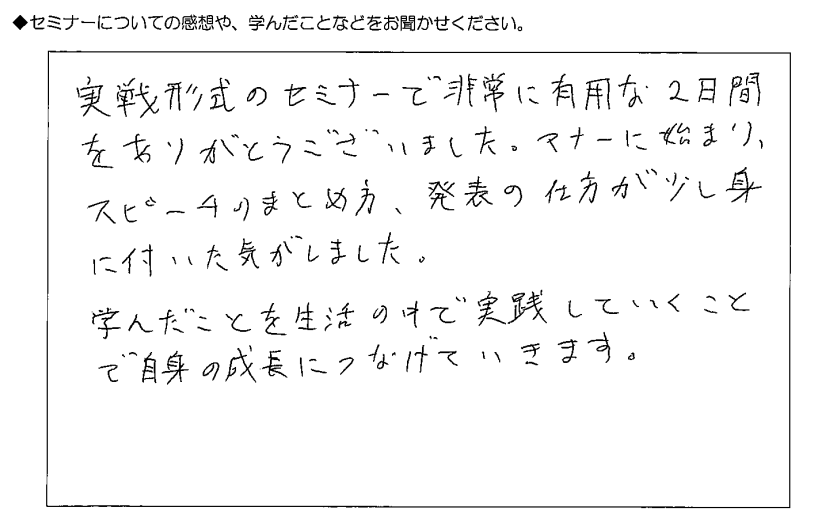 ◆セミナーについての感想や、学んだことなどをお聞かせください。
実戦形式のセミナーで非常に有用な2日間
をありがとうございました。マナーに始まり、
スピーチのまとめ方、発表の仕方が少し身
に付いた気がしました。
学んだことを生活の中で実践していくこと
で自身の成長につなげていきます。